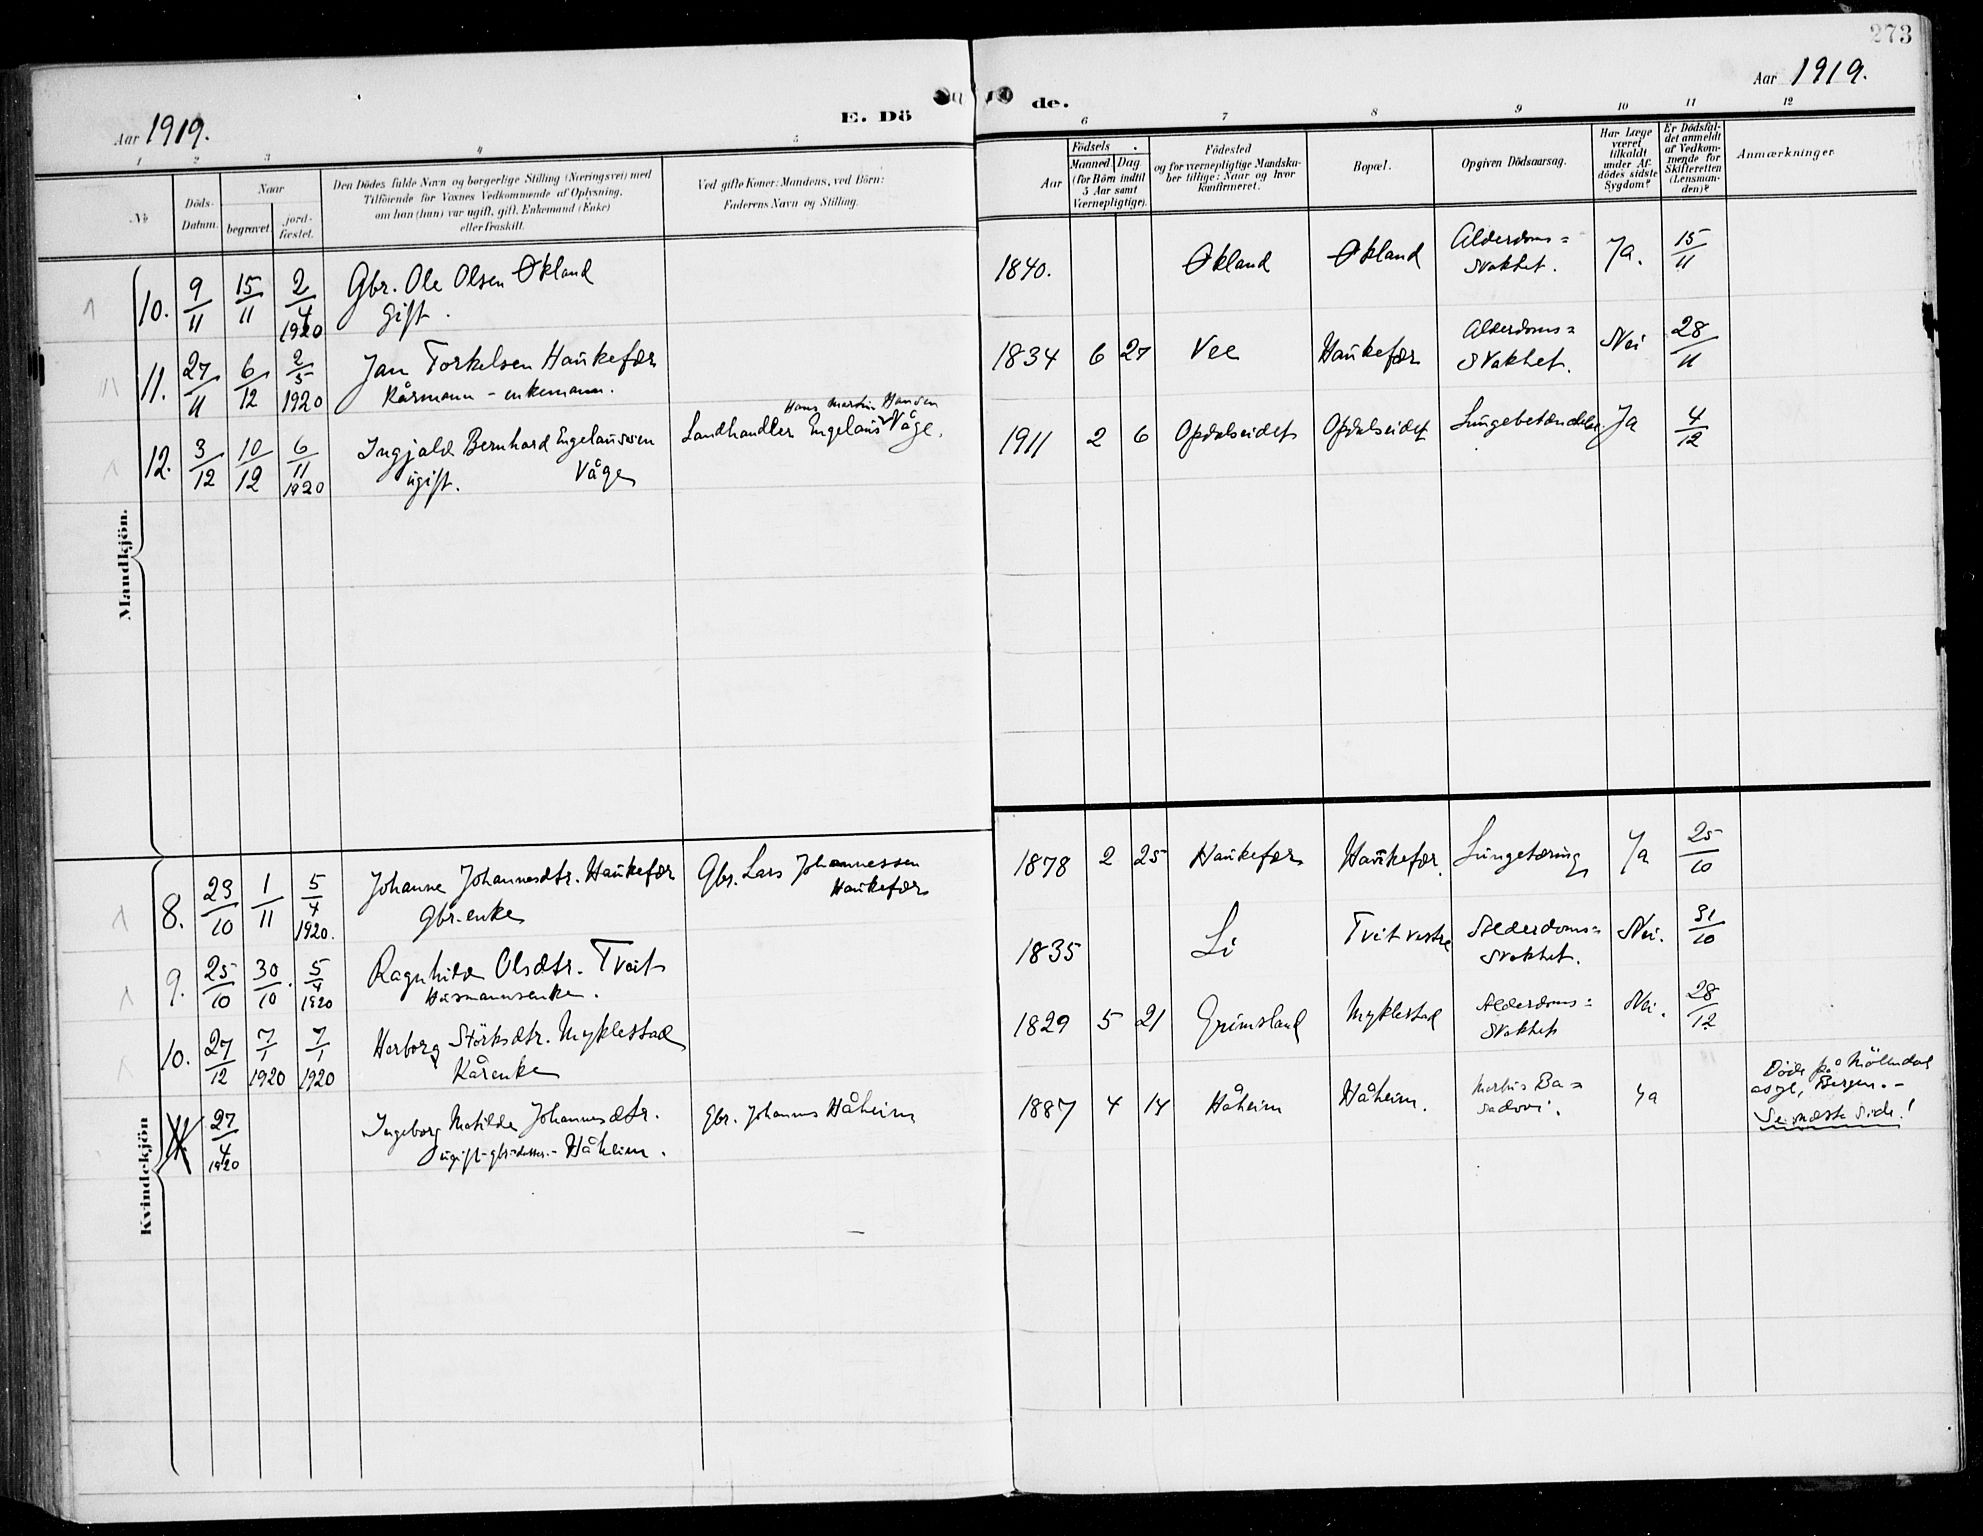 273
Aar 1919.
E. Dö de.
Aar 1919.
1 2 3 4 5 6 7 8 9 10 11 12
No
Döds-
Datum.
Naar
begravet.
jord-
fæstet.
Den Dödes fulde Navn og borgerlige Stilling (Næringsvei) med
Tilföiende for Voxnes Vedkommende af Oplysning,
om han (hun) var ugift, gift, Enkemand (Enke)
eller fraskilt.
Ved gifte Koner: Mandens, ved Börn:
Faderens Navn og Stilling.
Födsels
Aar
Maaned
Dag
(for Börn indtil
5 Aar samt
Værnepligtige).
Födested
og for værnepligtige Mandska-
ber tillige: Naar og hvor
konfirmeret.
Bopæl.
Opgiven Dödsaarsag.
Har Læge
været
tilkaldt
under Af-
dödes sidste
Sygdom?
Er Dödsfal-
det anmeldt
af Vedkom-
mende for
Skifteretten
(Lensman-
den)?
Anmærkninger
Mandkjön.
10. 9/11 15/11 2/4 1920 Gbr. Ole Olsen Økland 1840. Økland Økland Alderdoms= Ja. 15/11
gift. svakhet.
11. 27/11 6/12 2/5 1920 Jan Torkelsen Haukefær 1834 6 27 Vee Haukefær Alderdoms= Nei 28/11
Kårmann - enkemann. svakhet.
Hans Martin Hansen
12. 3/12 10/12 6/11 1920 Ingjald Bernhard Engelaussen Landhandler Engelaus Våge. 1911 2 6 Opdalseidet Opdalseidet Lungebetændelse Ja 4/12
ugift. Våge
Kvindekjön
8. 23/10 1/11 5/4 1920. Johanne Johannesdtr. Haukefær Gbr. Lars Johannessen 1878 2 25 Haukefær Haukefær. Lungetæring Ja 25/10
Gbr. enke Haukefær
9. 25/10 30/10. 5/4 1920 Ragnhild Olsdtr. Tveit 1835 Li Tveit vestre Alderdoms= Nei. 31/10
Husmannsenke. svakhet.
10. 27/12 7/1 1920 7/1 1920 Herborg Störksdtr. Myklestad 1829 5 21 Grimsland Myklestad Alderdoms= Nei. 28/12
Kårenke svakhet
11 27/4 1920 Ingeborg Matilde Johannesdtr. Gbr. Johannes Håheim 1887 4 14 Håheim Håheim. Morbus Ba= Ja Döde på Möllendal
ugift - gbr-datter. - Håheim. sedovi. asyl, Bergen. -
Se næste side!